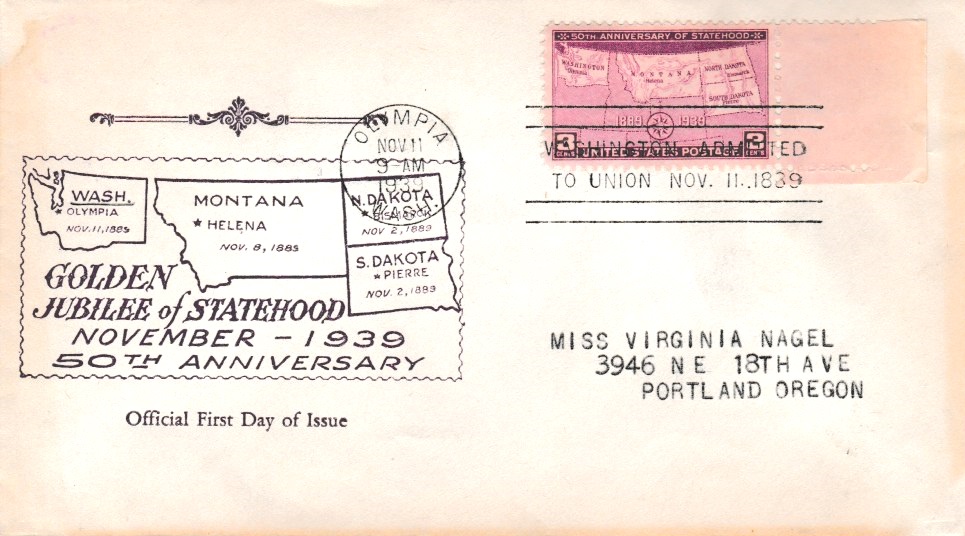 50TH ANNIVERSARY OF STATEHOOD
WASHINGTON
Olympia
MONTANA
Helena
NORTH DAKOTA
Bismarck
SOUTH DAKOTA
Pierre
1889 1939
3 CENTS UNITED STATES POSTAGE 3 CENTS
WASHINGTON ADMITTED
TO UNION NOV. 11, 1889
OLYMPIA
NOV 11
9-AM
1939
WASH.
WASH.
OLYMPIA
NOV. 11, 1889
MONTANA
HELENA
NOV. 8, 1889
N. DAKOTA
BISMARCK
NOV 2, 1889
S. DAKOTA
PIERRE
NOV. 2, 1889
GOLDEN
JUBILEE of STATEHOOD
NOVEMBER - 1939
50TH ANNIVERSARY
Official First Day of Issue
MISS VIRGINIA NAGEL
3946 NE 18TH AVE
PORTLAND OREGON